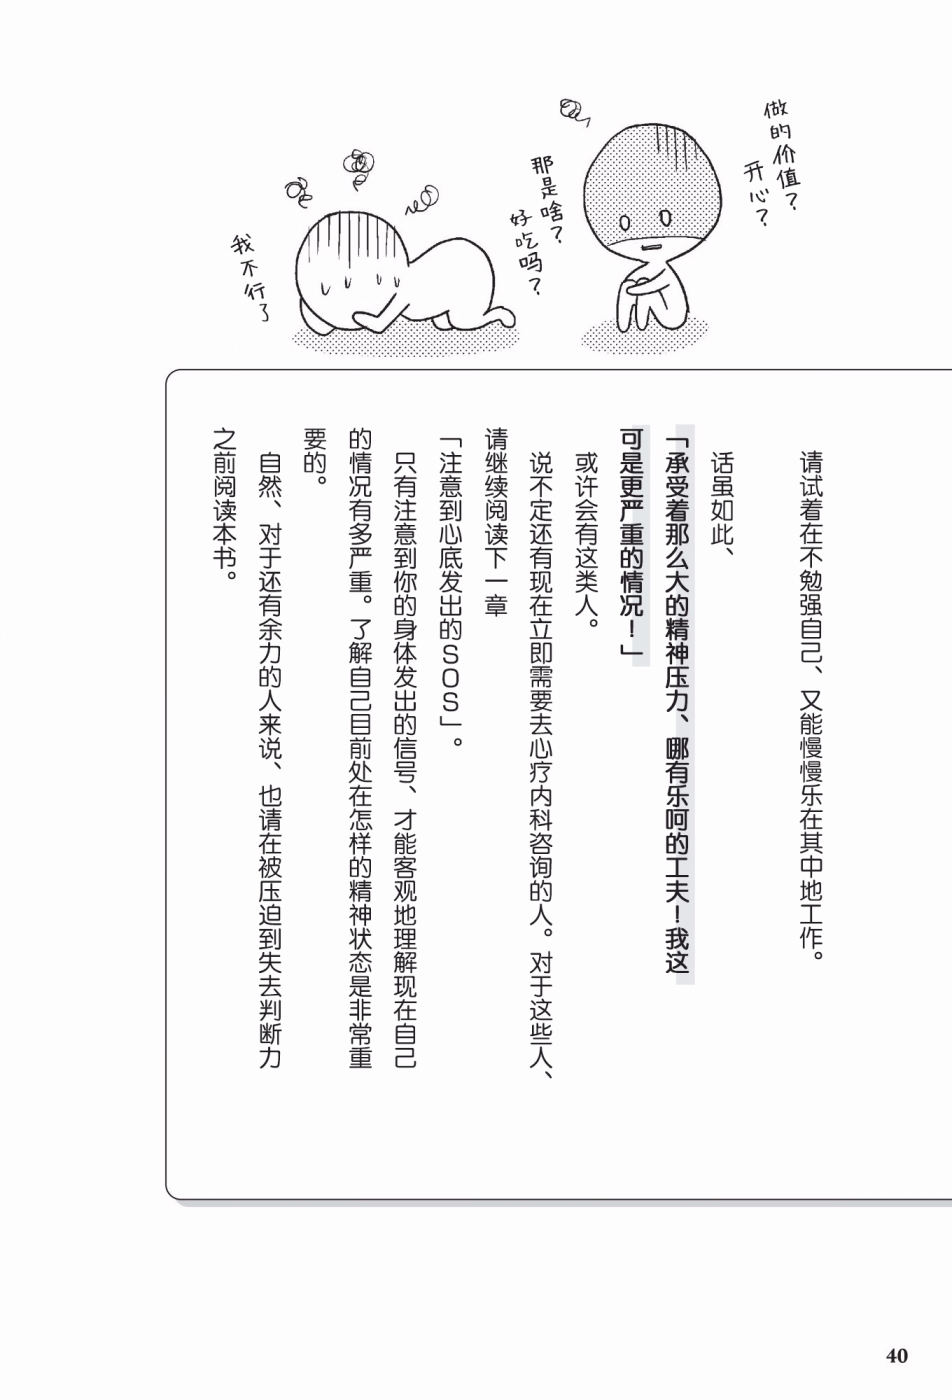 做的价值？
开心？
那是啥？
好吃吗？
我不行了
请试着在不勉强自己、又能慢慢乐在其中地工作。
话虽如此、
「承受着那么大的精神压力、哪有乐呵的工夫！我这
可是更严重的情况！」
或许会有这类人。
说不定还有现在立即需要去心疗内科咨询的人。对于这些人、
请继续阅读下一章
「注意到心底发出的SOS」。
只有注意到你的身体发出的信号、才能客观地理解现在自己
的情况有多严重。了解自己目前处在怎样的精神状态是非常重
要的。
自然、对于还有余力的人来说、也请在被压迫到失去判断力
之前阅读本书。
40